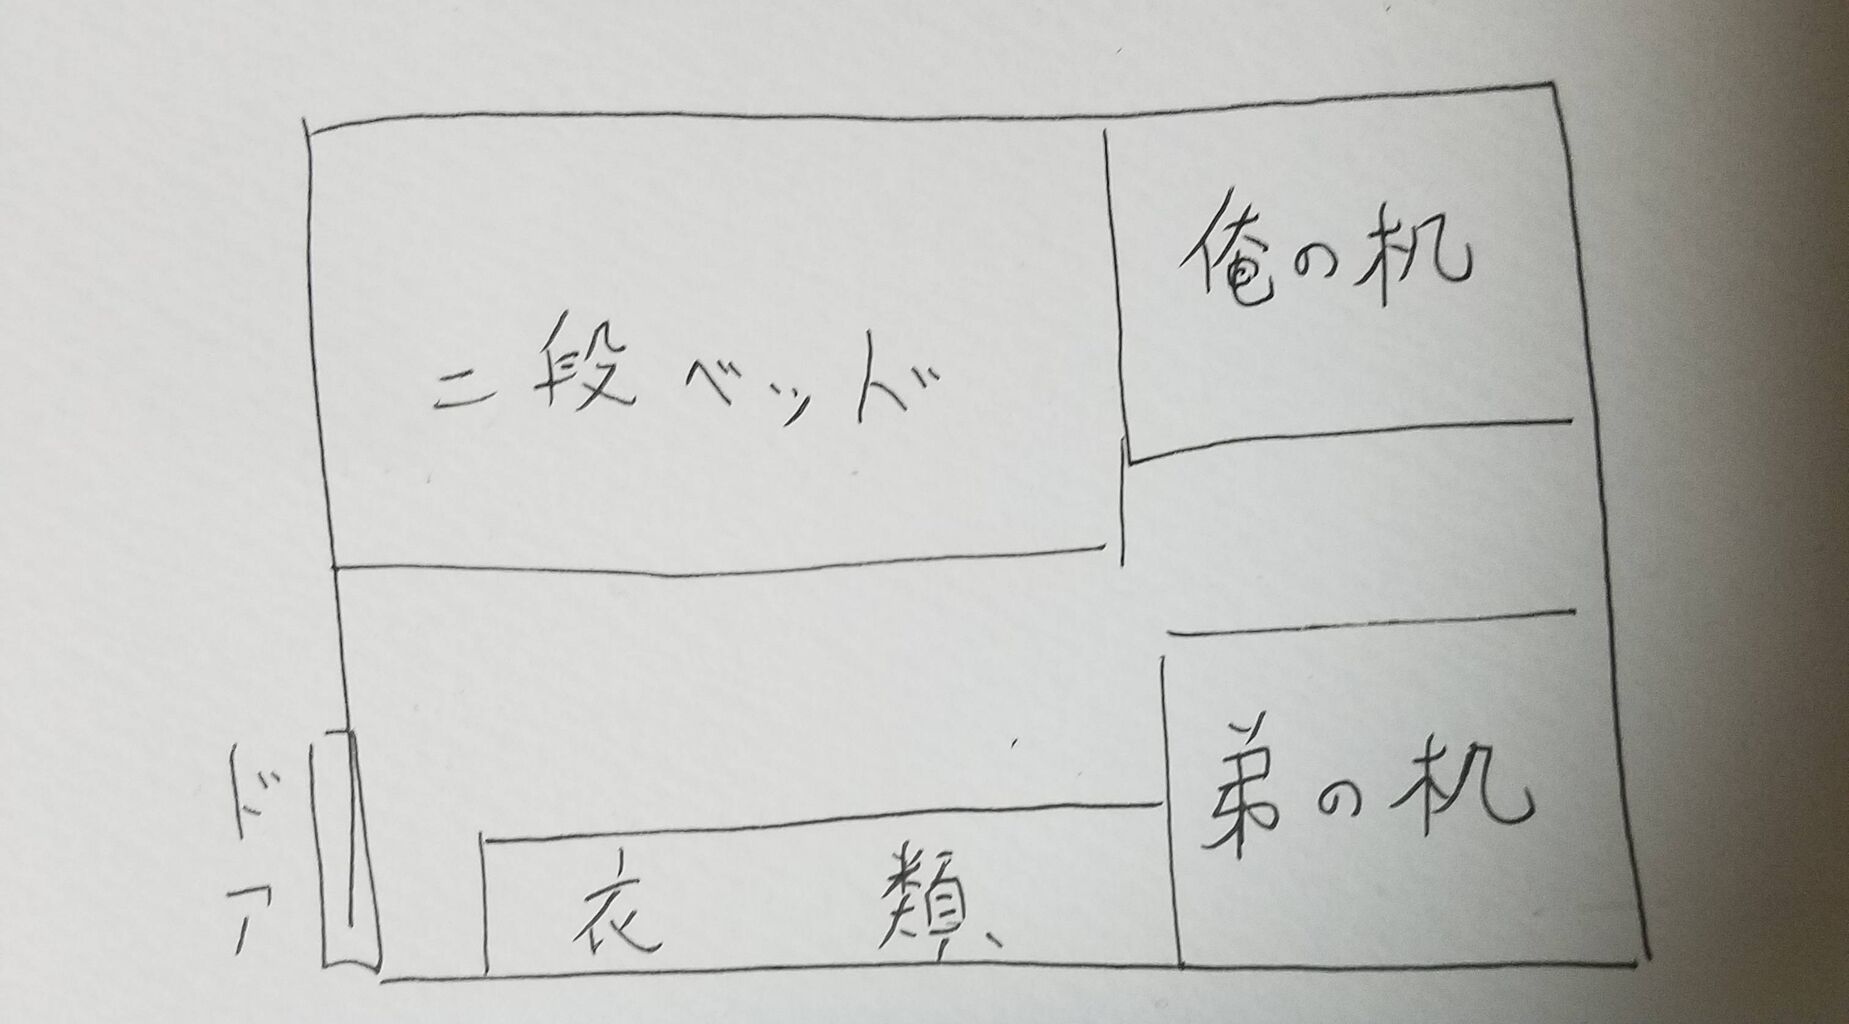 俺の机
二段ベッド
弟の机
ドア
衣類